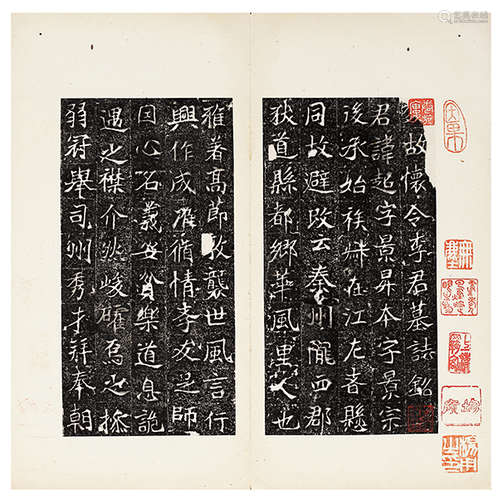 故懷令李君墓誌銘
君諱超字景昇本字景宗
後承始族叔在江左者縣
同故避改云秦州隴西郡
狄道縣都鄉華風里人也
雅著高節敦襲世風言行
興作成准循情孝友之師
因心名義安貧樂道息詭
遇之襟介然峻確焉之操
弱冠舉司州秀才拜奉朝